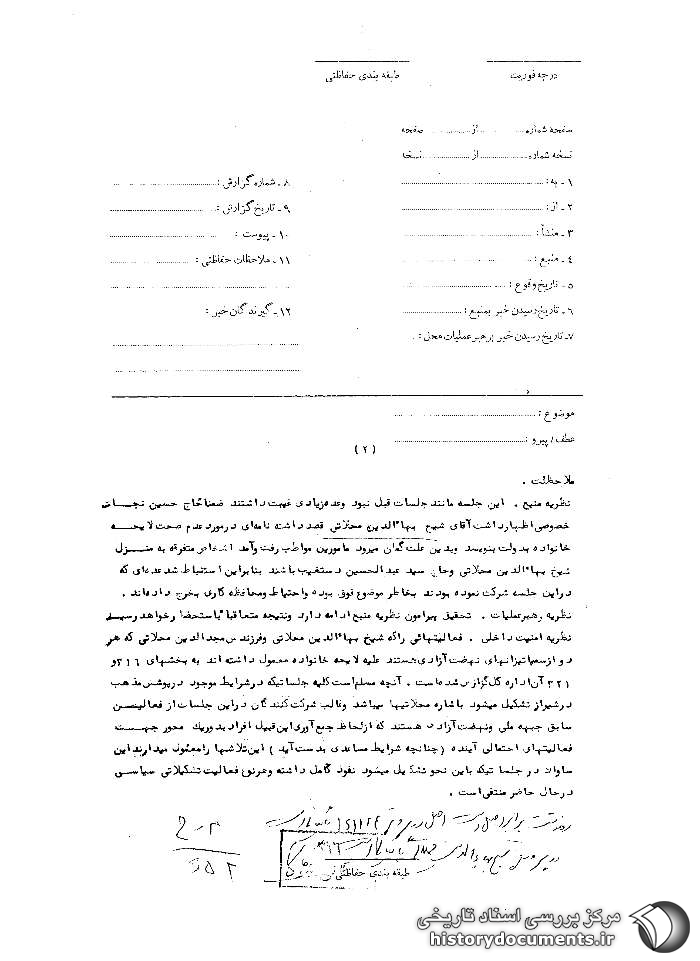 درجه فوریت
طبقه بندی حفاظتی
صفحه شماره ........ از ........ صفحه
نسخه شماره ........ از ........ نسخه
۱ ـ به :
۲ ـ از :
۳ ـ منشأ :
۴ ـ منبع :
۵ ـ تاریخ وقوع :
۶ ـ تاریخ رسیدن خبر بمنبع :
۷ ـ تاریخ رسیدن خبر برهبر عملیات محل :
۸ ـ شماره گزارش :
۹ ـ تاریخ گزارش :
۱۰ ـ پیوست :
۱۱ ـ ملاحظات حفاظتی :
۱۲ ـ گیرندگان خبر :
موضوع :
عطف / پیرو :
( ۲ )
ملاحظات .
نظریه منبع . این جلسه مانند جلسات قبل نبود وعده زیادی غیبت داشتند ضمناً حاج حسین نجات
خصوصی اظهارداشت آقای شیخ بهاءالدین محلاتی قصد داشته نامه‌ای درمورد عدم صحت لایحه
خانواده بدولت بنویسد وبدین علت گمان میرود مامورین مواظب رفت وآمد اشخاص متفرقه به منزل
شیخ بهاءالدین محلاتی وحاج سید عبدالحسین دستغیب باشند بنابراین استنباط شد عده‌ای که
دراین جلسه شرکت نموده بودند بخاطر موضوع فوق بوده واحتیاط ومحافظه کاری بخرج داده‌اند .
نظریه رهبرعملیات . تحقیق پیرامون نظریه منبع ادامه دارد ونتیجه متعاقباً باستحضار خواهد رسید
نظریه امنیت داخلی . فعالیتهائی راکه شیخ بهاءالدین محلاتی وفرزندش مجدالدین محلاتی که هر
دو ازسمپاتیزانهای نهضت آزادی هستند علیه لایحه خانواده معمول داشته اند به بخشهای ۳۱۶ و
۳۲۱ آن اداره کل گزارش شده است . آنچه مسلم است کلیه جلساتیکه درشرایط موجود درپوشش مذهب
درشیراز تشکیل میشود باشاره محلاتیها میباشد وغالب شرکت کنندگان دراین جلسات از فعالین
سابق جبهه ملی ونهضت آزادی هستند که ازلحاظ جمع آوری این قبیل افراد بدور یک محور جهت
فعالیتهای احتمالی آینده ( چنانچه شرایط مساعدی بدست آید ) این تلاشها را معمول میدارند این
ساواک در جلساتیکه باین نحو تشکیل میشود نفوذ کامل داشته وهرنوع فعالیت تشکیلاتی سیاسی
درحال حاضر منتفی است .
طبقه بندی حفاظتی
مرکز بررسی اسناد تاریخی
historydocuments.ir